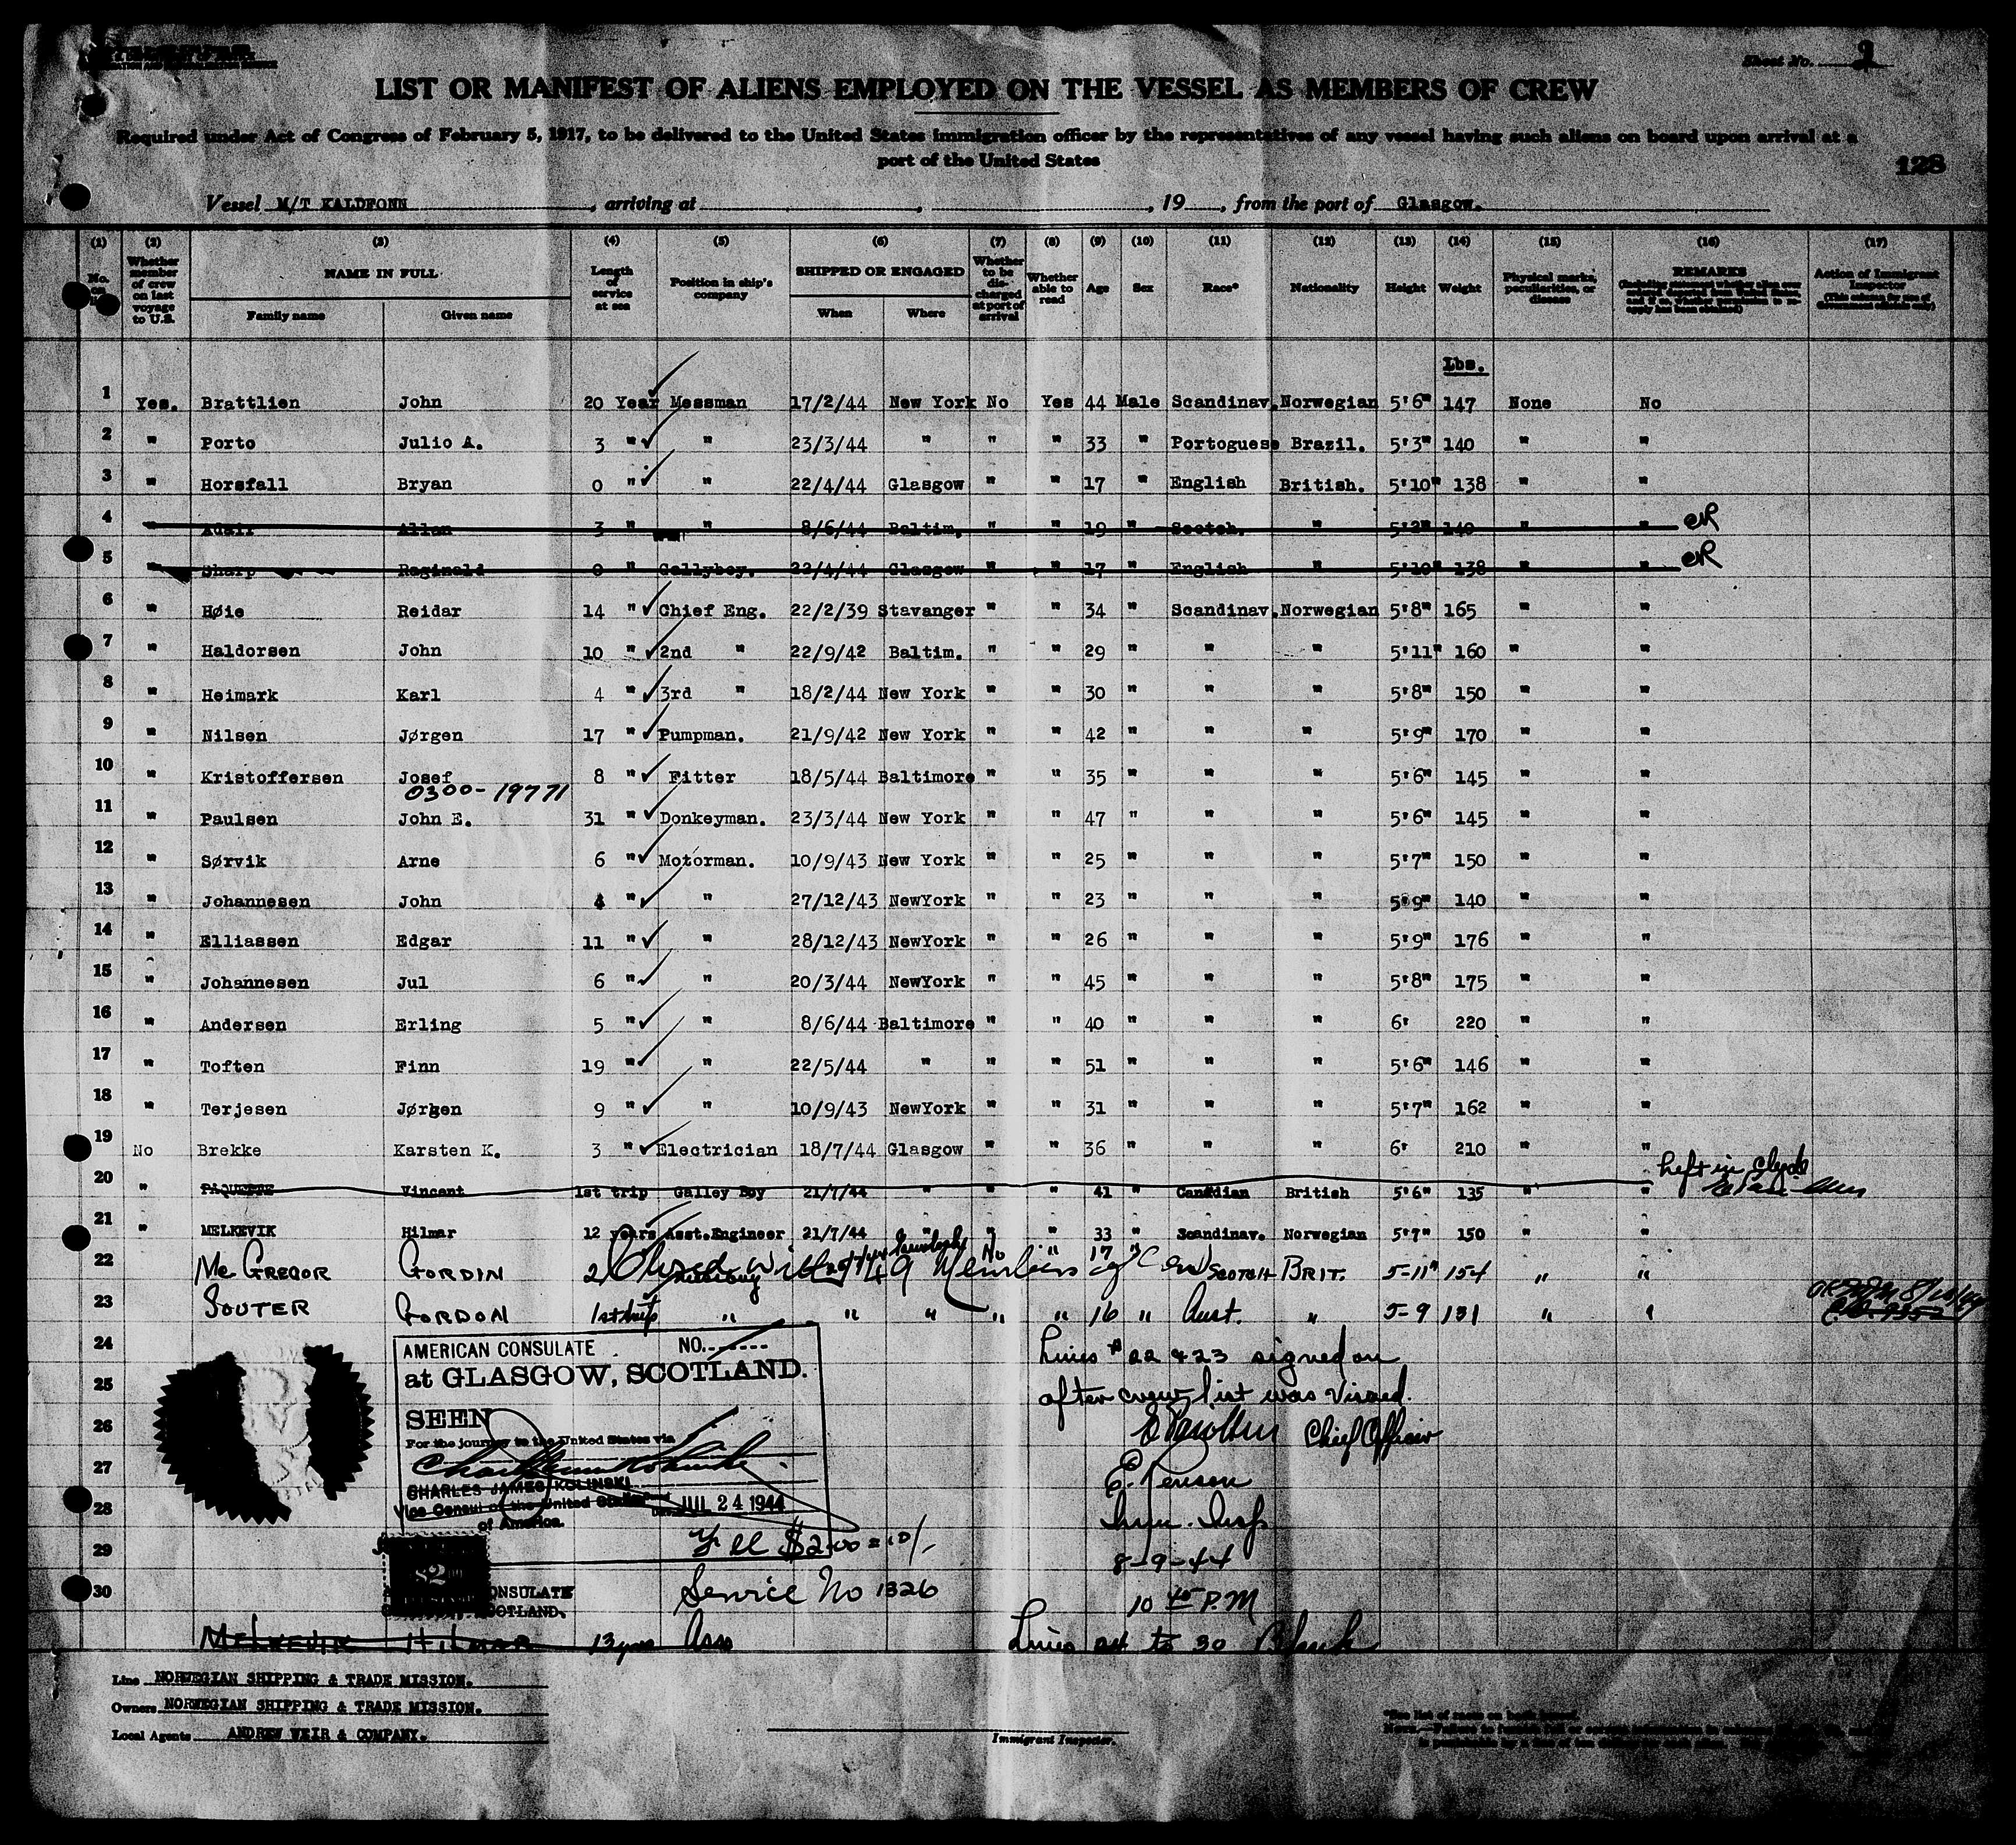 Sheet No. 2
LIST OR MANIFEST OF ALIENS EMPLOYED ON THE VESSEL AS MEMBERS OF CREW
Required under Act of Congress of February 5, 1917, to be delivered to the United States immigration officer by the representatives of any vessel having such aliens on board upon arrival at a
port of the United States
128
Vessel M/T KALDFONN, arriving at , , 19 , from the port of Glasgow.
(1) (2) (3) (4) (5) (6) (7) (8) (9) (10) (11) (12) (13) (14) (15) (16) (17)
No. on Whether member of crew on last voyage to U.S. NAME IN FULL Family name Given name Length of service at sea Position in ship's company SHIPPED OR ENGAGED When Where Whether to be discharged at port of arrival Whether able to read Age Sex Race* Nationality Height Weight Physical marks, peculiarities, or disease REMARKS Action of Immigrant Inspector
Lbs.
1 Yes. Brattlien John 20 Year Messman 17/2/44 New York No Yes 44 Male Scandinav. Norwegian 5'6" 147 None No
2 " Porto Julio A. 3 " " 23/3/44 " " " 33 " Portoguese Brazil. 5'3" 140 " "
3 " Horsfall Bryan 0 " " 22/4/44 Glasgow " " 17 " English British. 5'10" 138 " "
4 " Adair Allan 3 " " 8/6/44 Baltim. " " 19 " Scotch. " 5'2" 140 " "
5 " Sharp Reginald 0 " Gallyboy. 22/4/44 Glasgow " " 17 " English " 5'10" 138 " "
6 " Høie Reidar 14 " Chief Eng. 22/2/39 Stavanger " " 34 " Scandinav. Norwegian 5'8" 165 " "
7 " Haldorsen John 10 " 2nd " 22/9/42 Baltim. " " 29 " " " 5'11" 160 " "
8 " Heimark Karl 4 " 3rd " 18/2/44 New York " " 30 " " " 5'8" 150 " "
9 " Nilsen Jørgen 17 " Pumpman. 21/9/42 New York " " 42 " " " 5'9" 170 " "
10 " Kristoffersen Josef 8 " Fitter 18/5/44 Baltimore " " 35 " " " 5'6" 145 " "
0300-19771
11 " Paulsen John E. 31 " Donkeyman. 23/3/44 New York " " 47 " " " 5'6" 145 " "
12 " Sørvik Arne 6 " Motorman. 10/9/43 New York " " 25 " " " 5'7" 150 " "
13 " Johannesen John 4 " " 27/12/43 NewYork " " 23 " " " 5'9" 140 " "
14 " Elliassen Edgar 11 " " 28/12/43 NewYork " " 26 " " " 5'9" 176 " "
15 " Johannesen Jul 6 " " 20/3/44 NewYork " " 45 " " " 5'8" 175 " "
16 " Andersen Erling 5 " " 8/6/44 Baltimore " " 40 " " " 6' 220 " "
17 " Toften Finn 19 " " 22/5/44 " " " 51 " " " 5'6" 146 " "
18 " Terjesen Jørgen 9 " " 10/9/43 NewYork " " 31 " " " 5'7" 162 " "
19 No Brekke Karsten K. 3 " Electrician 18/7/44 Glasgow " " 36 " " " 6' 210 " "
Left in Clyde
20 " PAQUETTE Vincent 1st trip Galley Boy 21/7/44 " " " 41 " Canadian British 5'6" 135 " "
21 " MELKEVIK Hilmar 12 years Asst. Engineer 21/7/44 " " " 33 " Scandinav. Norwegian 5'7" 150 " "
22 McGREGOR GORDIN 2 No " 17 " SCOTCH BRIT. 5-11" 154 " "
Closed with 49 Members of Crew
23 SOUTER GORDON 1st trip " " " " " 16 " Aust. " 5-9 131 " "
24
25
26
27
28
29
30
AMERICAN CONSULATE NO.
at GLASGOW, SCOTLAND.
SEEN
For the journey to the United States via
CHARLES JAMES KOLINSKI
Vice Consul of the United States
of America.
JUL 24 1944
$2.00 = 10/-
Service No 1326
$2
CONSULATE
SCOTLAND.
Lines # 22 & 23 signed on
after crew list was visaed.
Chief Officer
Imm. Insp
8-9-44
10 45 P.M
MELKEVIK HILMAR 13 years Ass
Lines 24 to 30 Blank
Line NORWEGIAN SHIPPING & TRADE MISSION.
Owners NORWEGIAN SHIPPING & TRADE MISSION.
Local Agents ANDREW WEIR & COMPANY.
Immigrant Inspector.